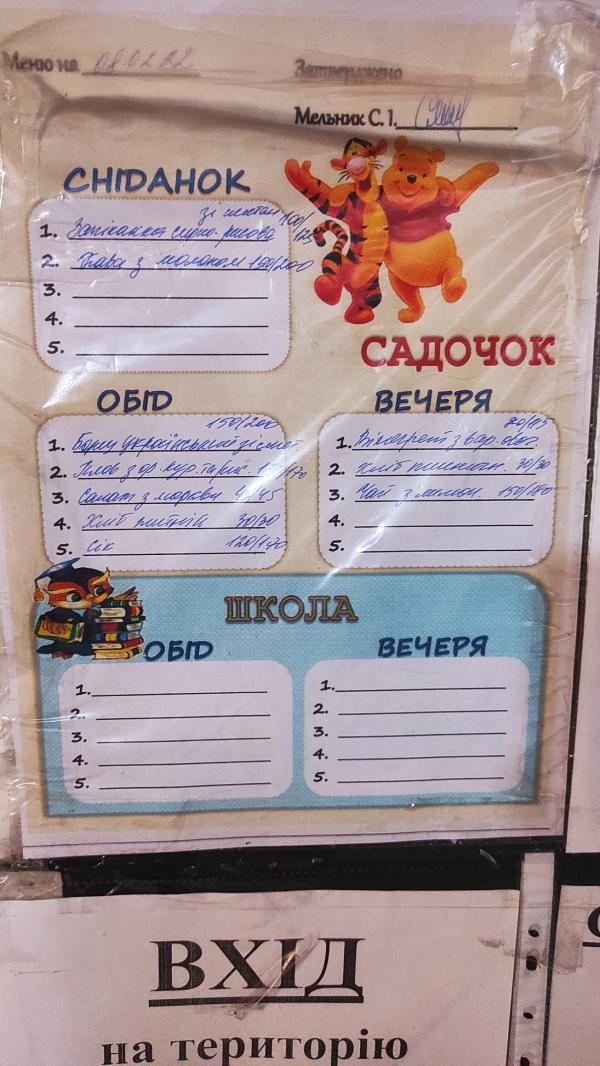 Меню на 08.02.22
Затверджено
Мельник С. І.
СНІДАНОК
зі сметан 100/125
1. Запіканка сирно-рисова
2. Кава з молоком 150/200
3.
4.
5.
САДОЧОК
ОБІД
150/200
1. Борщ український зі смет
2. Плов з
3. Салат з моркви 45/45
4. Хліб пшенич 30/30
5. Сік 120/170
ВЕЧЕРЯ
1. Вінегрет з вар.
2. Хліб пшенич. 30/30
3. Чай з лимон. 150/180
4.
5.
ШКОЛА
ОБІД
1.
2.
3.
4.
5.
ВЕЧЕРЯ
1.
2.
3.
4.
5.
ВХІД
на територію